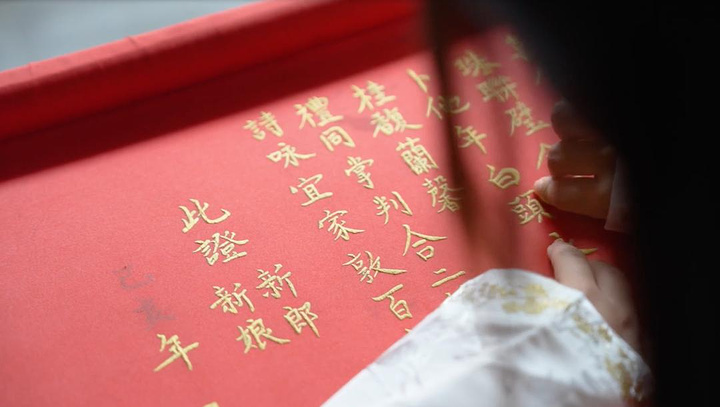 珠聯璧
卜他年白頭
桂馥蘭馨
禮同掌判合二
詩咏宜家敦百
此證
新郎
新娘
己亥年